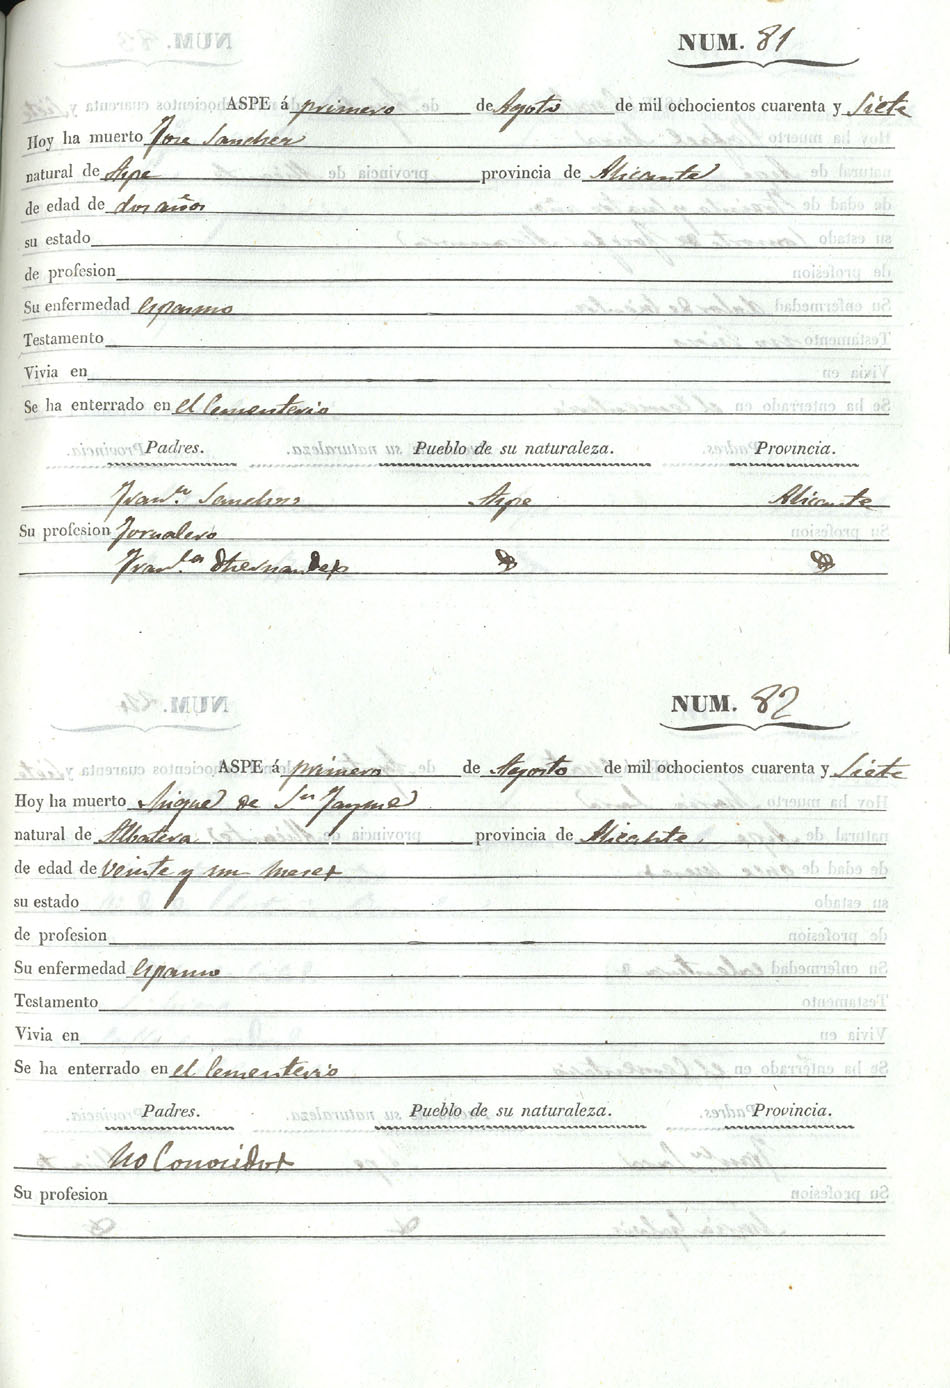 NUM. 81
ASPE á primero de Agosto de mil ochocientos cuarenta y Siete
Hoy ha muerto Jose Sanchez
natural de Aspe provincia de Alicante
de edad de dos años
su estado
de profesion
Su enfermedad espasmo
Testamento
Vivia en
Se ha enterrado en el Cementerio
Padres. Pueblo de su naturaleza. Provincia.
Fran.co Sanchez Aspe Alicante
Su profesion Jornalero
Fran.ca Hernandez
NUM. 82
ASPE á primero de Agosto de mil ochocientos cuarenta y Siete
Hoy ha muerto Miguel de Sn Jayme
natural de Albatera provincia de Alicante
de edad de veinte y un meses
su estado
de profesion
Su enfermedad espasmo
Testamento
Vivia en
Se ha enterrado en el Cementerio
Padres. Pueblo de su naturaleza. Provincia.
No Conocidos
Su profesion